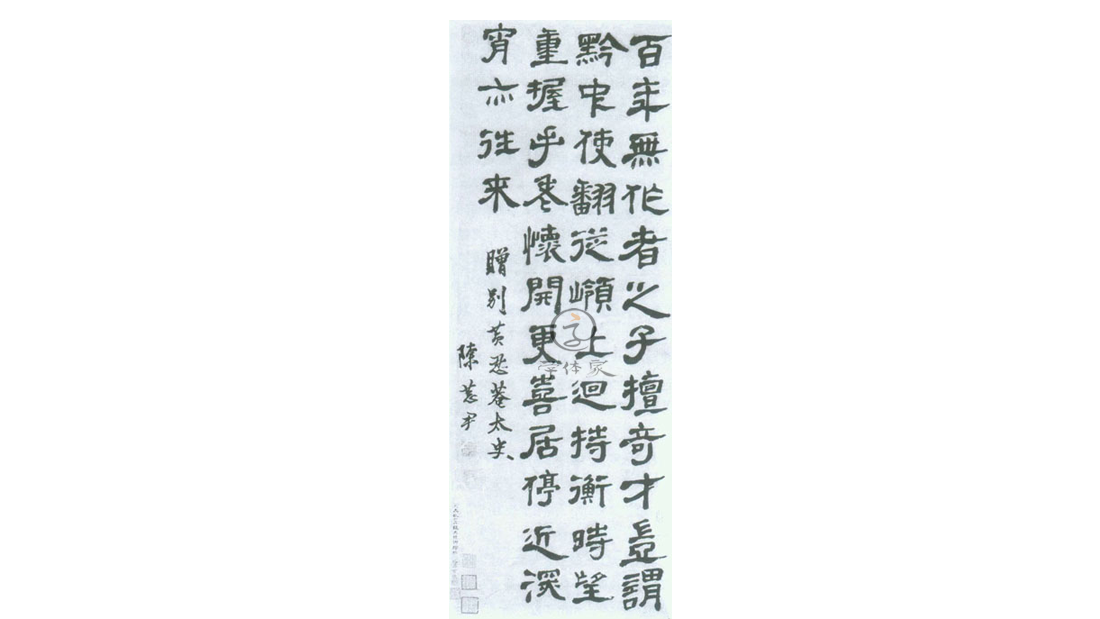 百年無作者之子擅奇才豈謂
黔中使翻從嶺上迴持衡時望
重握手卷懷開更喜居停近深
宵亦往來
贈別黃忍菴太史
陳恭尹
字体家